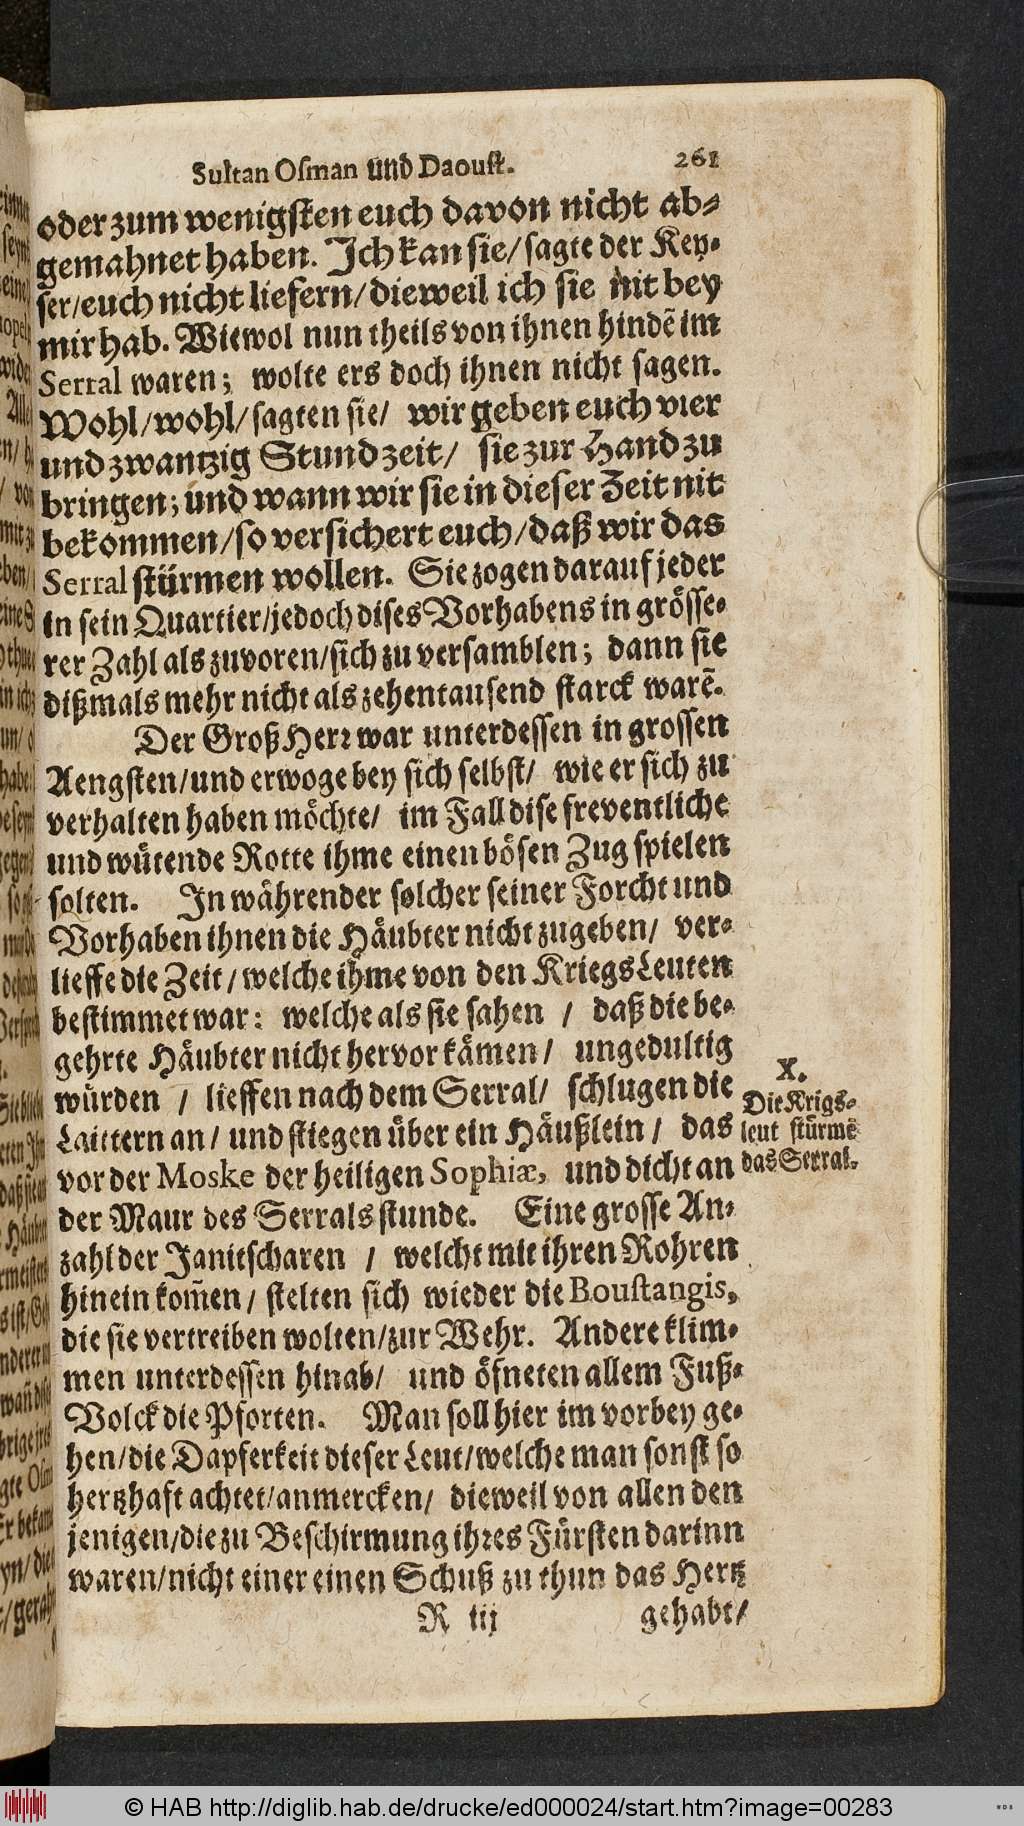 Sultan Osman und Daoust. 261
oder zum wenigsten euch davon nicht ab-
gemahnet haben. Ich kan sie/ sagte der Key-
ser/ euch nicht liefern/ dieweil ich sie nit bey
mir hab. Wiewol nun theils von ihnen hindẽ im
Serral waren; wolte ers doch ihnen nicht sagen.
Wohl/ wohl/ sagten sie/ wir geben euch vier
und zwantzig Stund zeit/ sie zur Hand zu
bringen; und wann wir sie in dieser Zeit nit
bekommen/ so versichert euch/ daß wir das
Serral stürmen wollen. Sie zogen darauf jeder
in sein Quartier/ jedoch dises Vorhabens in grösse-
rer Zahl als zuvoren/ sich zu versamblen; dann sie
dißmals mehr nicht als zehentausend starck warẽ.
Der Groß Herr war unterdessen in grossen
Aengsten/ und erwoge bey sich selbst/ wie er sich zu
verhalten haben möchte/ im Fall dise freventliche
und wütende Rotte ihme einen bösen Zug spielen
solten. In währender solcher seiner Forcht und
Vorhaben ihnen die Häubter nicht zugeben/ ver-
lieffe die Zeit/ welche ihme von den KriegsLeuten
bestimmet war: welche als sie sahen / daß die be-
gehrte Häubter nicht hervor kämen/ ungedultig
würden / lieffen nach dem Serral/ schlugen die
Laittern an/ und stiegen über ein Häußlein/ das
vor der Moske der heiligen Sophiæ, und dicht an
der Maur des Serrals stunde. Eine grosse An-
zahl der Janitscharen / welcht mit ihren Rohren
hinein kom̃en/ stelten sich wieder die Boustangis,
die sie vertreiben wolten/ zur Wehr. Andere klim-
men unterdessen hinab/ und öfneten allem Fuß-
Volck die Pforten. Man soll hier im vorbey ge-
hen/ die Dapferkeit dieser Leut/ welche man sonst so
hertzhaft achtet/ anmercken/ dieweil von allen den
jenigen/ die zu Beschirmung ihres Fürsten darinn
waren/ nicht einer einen Schuß zu thun das Hertz
R iij gehabt/
X.
Die Krigs-
leut stürmẽ
das Serral.
© HAB http://diglib.hab.de/drucke/ed000024/start.htm?image=00283